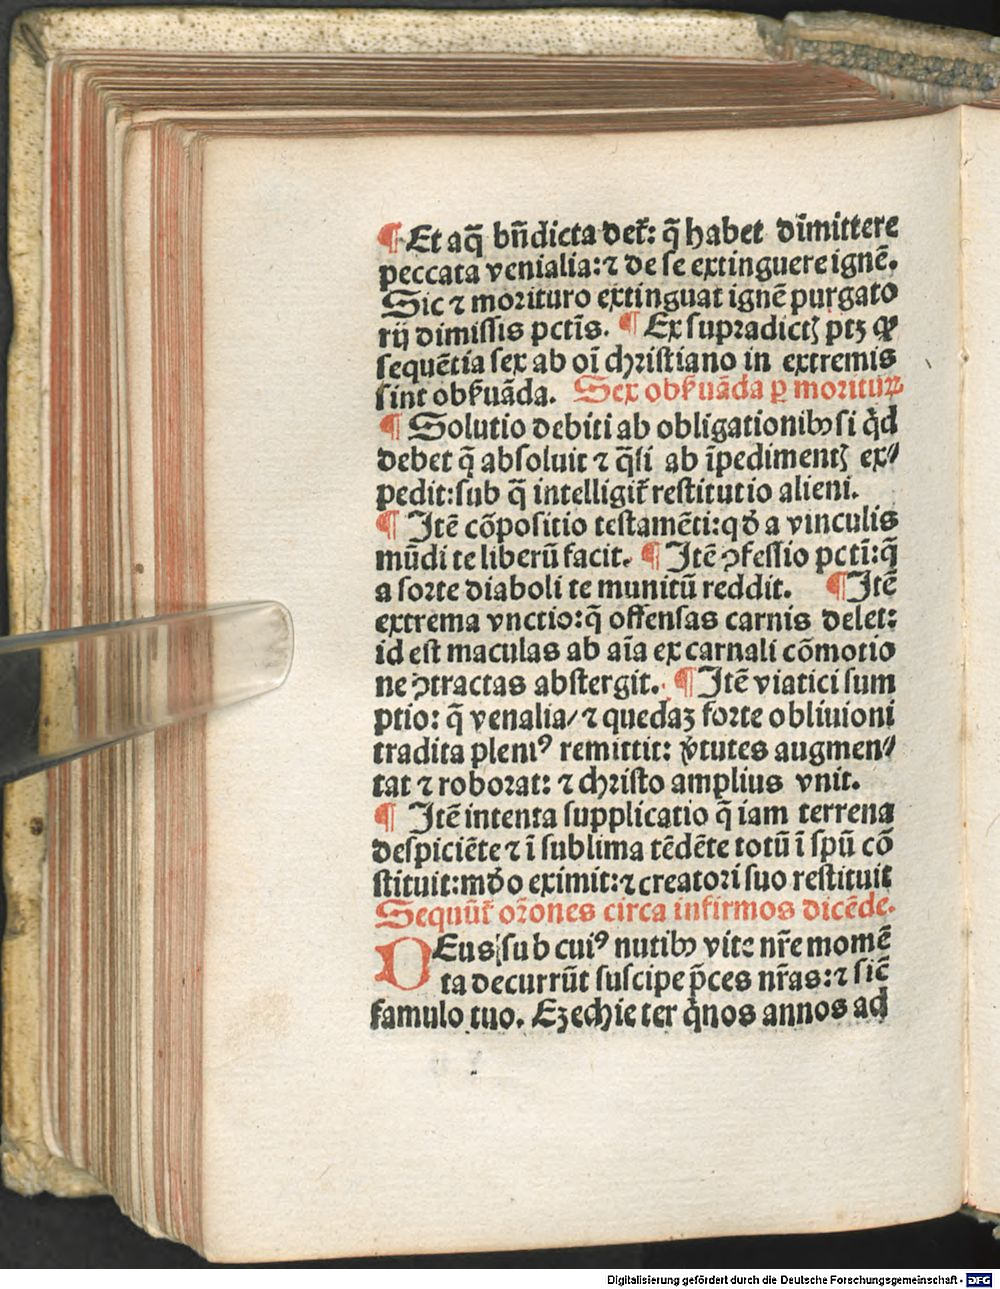 ¶ Et aq̃ bñdicta det᷑: q̃ habet dīmittere
peccata venialia: ⁊ de se extinguere ignē.
Sic ⁊ morituro extinguat ignē purgato
rij dimissis pctīs. ¶ Ex supradictꝭ ptꝫ ꝙ
sequētia sex ab oī christiano in extremis
sint obẜuāda. Sex obẜuāda ꝑ morituꝝ
¶ Solutio debiti ab obligationibꝰ si qͥd
debet q̃ absoluit ⁊ q̃si ab īpedimentꝭ ex⸗
pedit: sub q̃ intelligit᷑ restitutio alieni.
¶ Itē cōpositio testamēti: qđ a vinculis
mūdi te liberū facit. ¶ Itē ꝯfessio pctī: q̃
a sorte diaboli te munitū reddit. ¶ Itē
extrema vnctio: q̃ offensas carnis delet:
id est maculas ab aīa ex carnali cōmotio
ne ꝯtractas abstergit. ¶ Itē viatici sum
ptio: q̃ venalia/ ⁊ quedaꝫ forte obliuioni
tradita pleniꝰ remittit: v̓tutes augmen⸗
tat ⁊ roborat: ⁊ christo amplius vnit.
¶ Itē intenta supplicatio q̃ iam terrena
despiciēte ⁊ ī sublima tēdēte totū ī spū cō
stituit: mđo eximit: ⁊ creatori suo restituit
Sequūt᷑ or̄ones circa infirmos dicēde.
DEus sub cuiꝰ nutibꝰ vite nr̄e momē
ta decurrūt suscipe p̄ces nr̄as: ⁊ sic̄
famulo tuo. Ezechie ter qͥnos annos ad
Digitalisierung gefördert durch die Deutsche Forschungsgemeinschaft - DFG